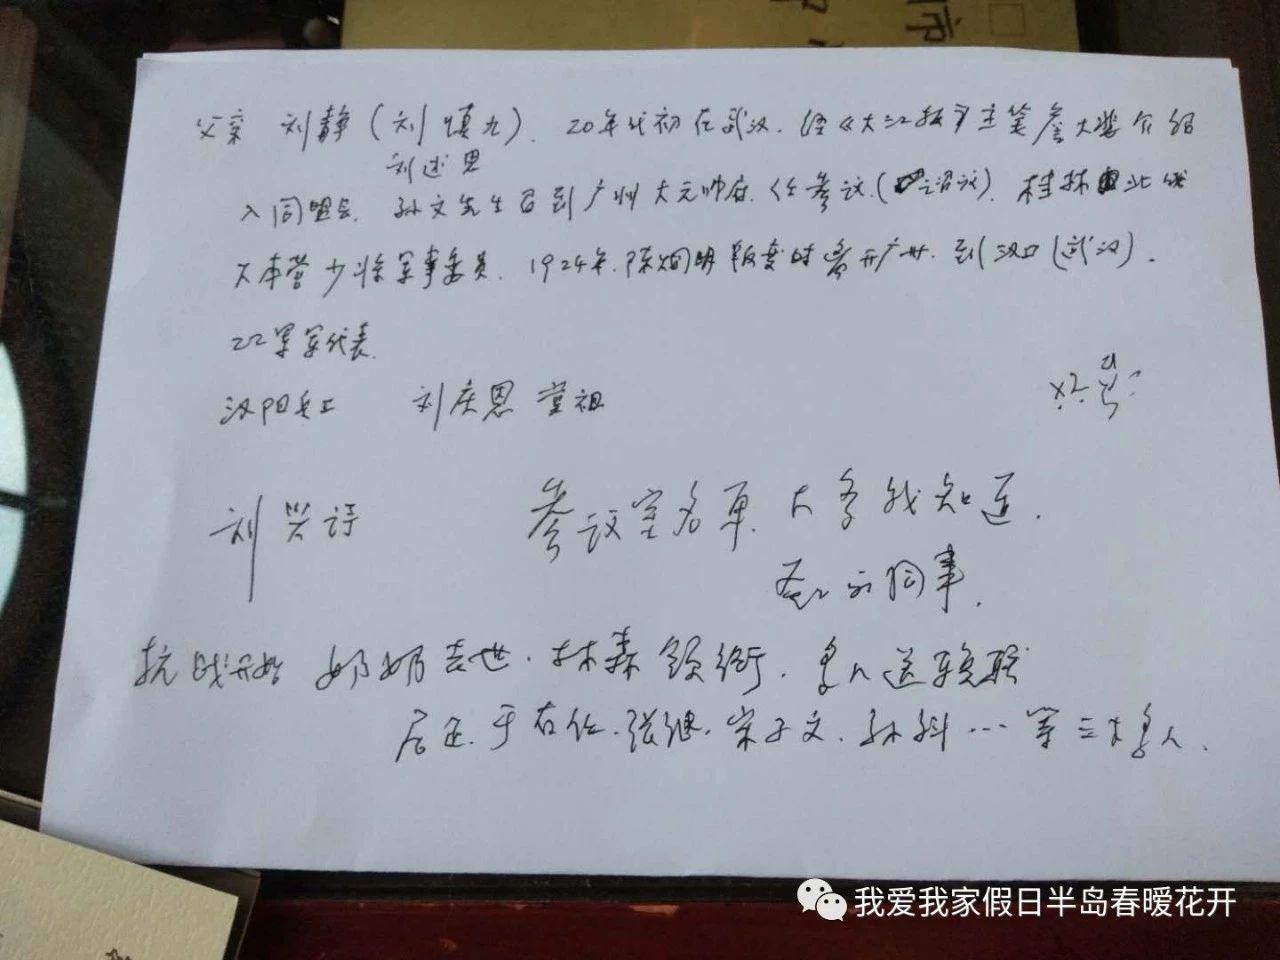 父亲 刘静(刘慎九). 20年代初在武汉. 经《大江报》主笔詹大悲介绍
刘述思
入同盟会. 孙文先生召到广州大元帅府. 任参议.(咨议). 桂林北伐
大本营少将军事委员. 1924年. 陈炯明叛变时离开广州. 到汉口(武汉).
22军军代表.
汉阳兵工 刘庆恩 堂祖
刘兴诗 参议室名单. 大多我知道.
的同事.
抗战开始 奶奶去世. 林森领衔. 多人送挽联
居正. 于右任. 张继. 宋子文. 孙科…等三十多人.
我爱我家假日半岛春暖花开